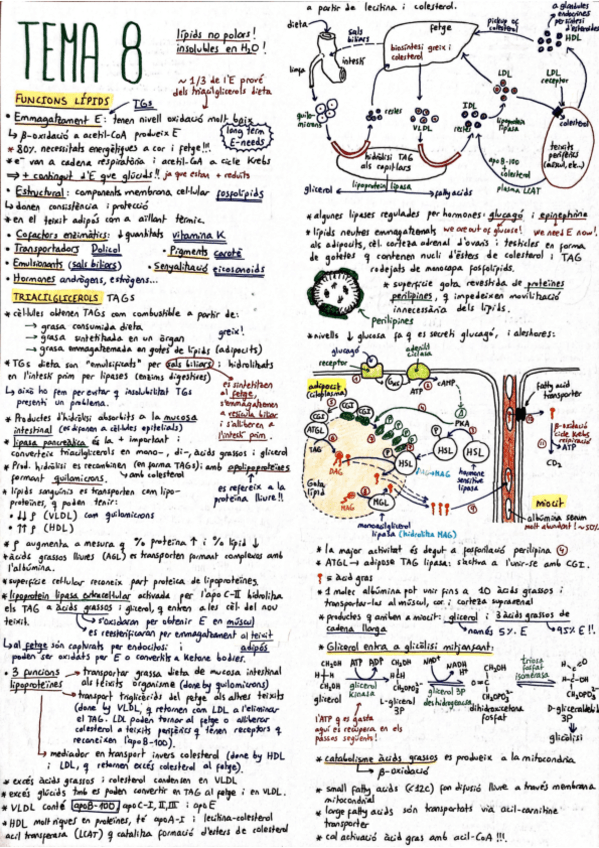 TEMA 8
lípids no polars!
insolubles en H₂O!
~ 1/3 de l'E prové
dels triacilglicerols dieta
FUNCIONS LÍPIDS
TGs
• Emmagatzament E: tenen nivell oxidació molt baix
↳ β-oxidació a acetil-CoA produeix E
long term
E-needs
* 80% necessitats energètiques a cor i fetge!!!
* e⁻ van a cadena respiratòria i acetil-CoA a cicle Krebs
⇒ + contingut d'E que glúcids!! ja que estan + reduïts
• Estructural: components membrana cel·lular fosfolípids
↳ donen consistència i protecció
* en el teixit adipós com a aïllant tèrmic.
• Cofactors enzimàtics: ↓ quantitats vitamina K
• Transportadors Dolicol
• Pigments carotè
• Emulsionants (sals biliars)
• Senyalització eicosanoids
• Hormones andrògens, estrògens...
TRIACILGLICEROLS TAGs
* cèl·lules obtenen TAGs com combustible a partir de:
→ grasa consumida dieta
→ grasa sintetitzada en un òrgan
greix!
→ grasa emmagatzemada en gotes de lípids (adipòcits)
* TGs dieta son "emulsificats" per sals biliars i hidrolitzats
en l'intestí prim per lipases (enzims digestives)
↳ això ho fem per evitar q insolubilitat TGs
presenti un problema.
es sintetitzen
al fetge,
s'emmagatzemen
a vesícula biliar
i s'alliberen a
l'intestí prim.
* Productes d'hidròlisi absorbits a la mucosa
intestinal (es difonen a cèl·lules epitelials)
* lipasa pancreàtica és la + important i
converteix triacilglicerols en mono-, di-, àcids grassos i glicerol
* Prod. hidròlisi es recombinen (en forma TAGs) i amb apolipoproteïnes
formant quilomicrons.
↳ amb colesterol
es refereix a la
proteïna lliure!!
* lípids sanguinis es transporten com lipo-
proteïnes, q poden tenir:
• ↓↓ ρ (VLDL) com quilomicrons
• ↑↑ ρ (HDL)
* ρ augmenta a mesura q % proteïna ↑ i % lípid ↓
* àcids grassos lliures (AGL) es transporten formant complexos amb
l'albúmina.
* superfície cel·lular reconeix part proteica de lipoproteïnes.
* lipoproteïn lipasa extracel·lular activada per l'apo C-II hidrolitza
els TAG a àcids grassos i glicerol, q entren a les cèl del nou
teixit.
↳ s'oxidaran per obtenir E en múscul
es reesterificaran per emmagatzemament al teixit
adipós
↳ al fetge són capturats per endocitosi i
poden ser oxidats per E o convertits a ketone bodies.
• 3 funcions
lipoproteïnes
transportar grassa dieta de mucosa intestinal
als teixits organisme (done by quilomicrons)
transport triglicèrids del fetge als altres teixits
(done by VLDL, q retornen com LDL a l'eliminar
el TAG. LDL poden tornar al fetge o alliberar
colesterol a teixits perifèrics q tenen receptors q
reconeixen l'apoB-100).
mediador en transport invers colesterol (done by HDL
i LDL, q retornen excés colesterol al fetge).
* excés àcids grassos i colesterol condensen en VLDL
* excés glúcids tmb es poden convertir en TAG al fetge i en VLDL.
* VLDL conté apoB-100, apoC-I, II, III i apoE
* HDL molt riques en proteïnes, té apoA-I i lecitina-colesterol
acil transferasa (LCAT) q catalitza formació d'èsters de colesterol
a partir de lecitina i colesterol.
dieta
sals
biliars
fetge
biosíntesi greix i
colesterol
pickup of
colesterol
a glàndules
endocrines
HDL
intestí
limfa
quilo-
microns
restes
VLDL
lipoproteïn
lipasa
IDL
restes
LDL
LDL
LDL
receptor
colesterol
teixits
perifèrics
(múscul, etc...)
apoB-100
colesterol
plasma LCAT
hidròlisi TAG
als capil·lars
glicerol
lipoproteïn lipasa
fatty acids
* algunes lipases regulades per hormones: glucagó i epinephrina
we are out of glucose!
we need E now!
* lípids neutres emmagatzemats
als adipòcits, cèl. corteza adrenal d'ovaris i testicles en forma
de gotetes q contenen nucli d'èsters de colesterol i TAG
rodejats de monocapa fosfolípids.
* superfície gota revestida de proteïnes
perilipines, q impedeixen mobilització
innecessària dels lípids.
Perilipines
* nivells ↓ glucosa fa q es secreti glucagó, i aleshores:
glucagó
receptor
adenilil
ciclasa
GαS
ATP
cAMP
PKA
adipòcit
(citoplasma)
CGI
ATGL
TAG
DAG
HSL
DAG→MAG
hormone
sensitive
lipase
Gota
lípid
MAG
MGL
monoacilglicerol
lipasa (hidrolitza MAG)
fatty acid
transporter
β-oxidació
cicle Krebs
respiració
ATP
CO₂
miòcit
albúmina serum
molt abundant! ~50%
* la major activitat és degut a fosforilació perilipina ④
* ATGL → adipose TAG lipasa: s'activa a l'unir-se amb CGI.
= àcid gras
* 1 molec albúmina pot unir fins a 10 àcids grassos i
transportar-los al múscul, cor i corteza suprarenal
* productes q arriben a miòcit: glicerol i 3 àcids grassos de
cadena llarga
→ només 5% E
→ 95% E!!
* Glicerol entra a glicòlisi mitjançant:
CH₂OH
CH₂OH
ATP
ADP
glicerol
kinasa
CH₂OH
CH₂OPO₃²⁻
L-glicerol
3P
NAD⁺
NADH
H⁺
glicerol 3P
deshidrogenasa
CH₂OH
C=O
CH₂OPO₃²⁻
dihidroxicetona
fosfat
triosa
fosfat
isomerasa
CH₂OPO₃²⁻
D-gliceraldehid
3P
glicòlisi
l'ATP q es gasta
aquí es recupera en els
passos següents!
* catabolisme àcids grassos es produeix a la mitocòndria.
↳ β-oxidació
* small fatty acids (<12C) fan difusió lliure a través membrana
mitocondrial
* large fatty acids són transportats via acil-carnitine
transporter
* cal activació àcid gras amb acil-CoA !!!.